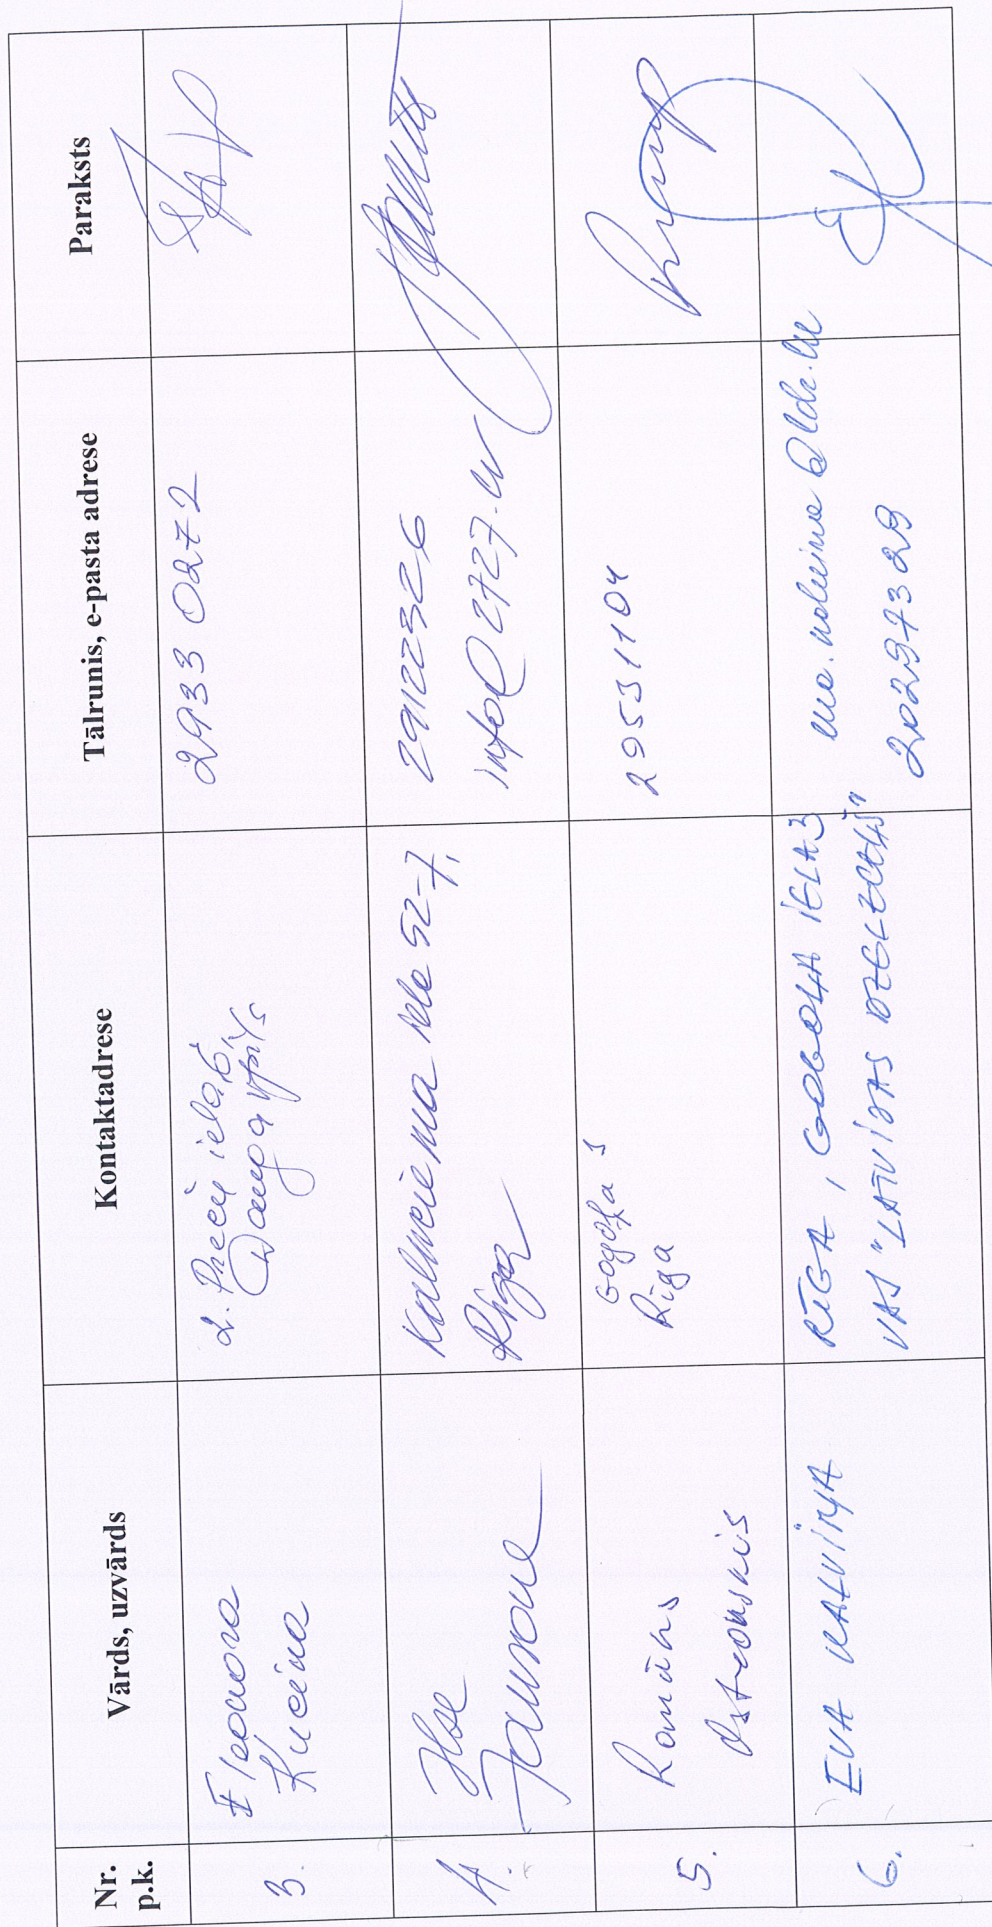 Nr. p.k. Vārds, uzvārds Kontaktadrese Tālrunis, e-pasta adrese Paraksts
3. Eleonora Kucina 2. Preču ielā 6, Daugavpils 2933 0272
4. Ilze Jaunzeme Kalnciema iela 52-7, Rīga 29122326 info@2727.lv
5. Romāns Ostrovskis Gogoļa 3 Rīga 29531104
6. EVA KALVIŅA RĪGA, GOGOĻA IELA 3 VAS "LATVIJAS DZELZCEĻŠ" eva.kalvina@ldz.lv 20297329